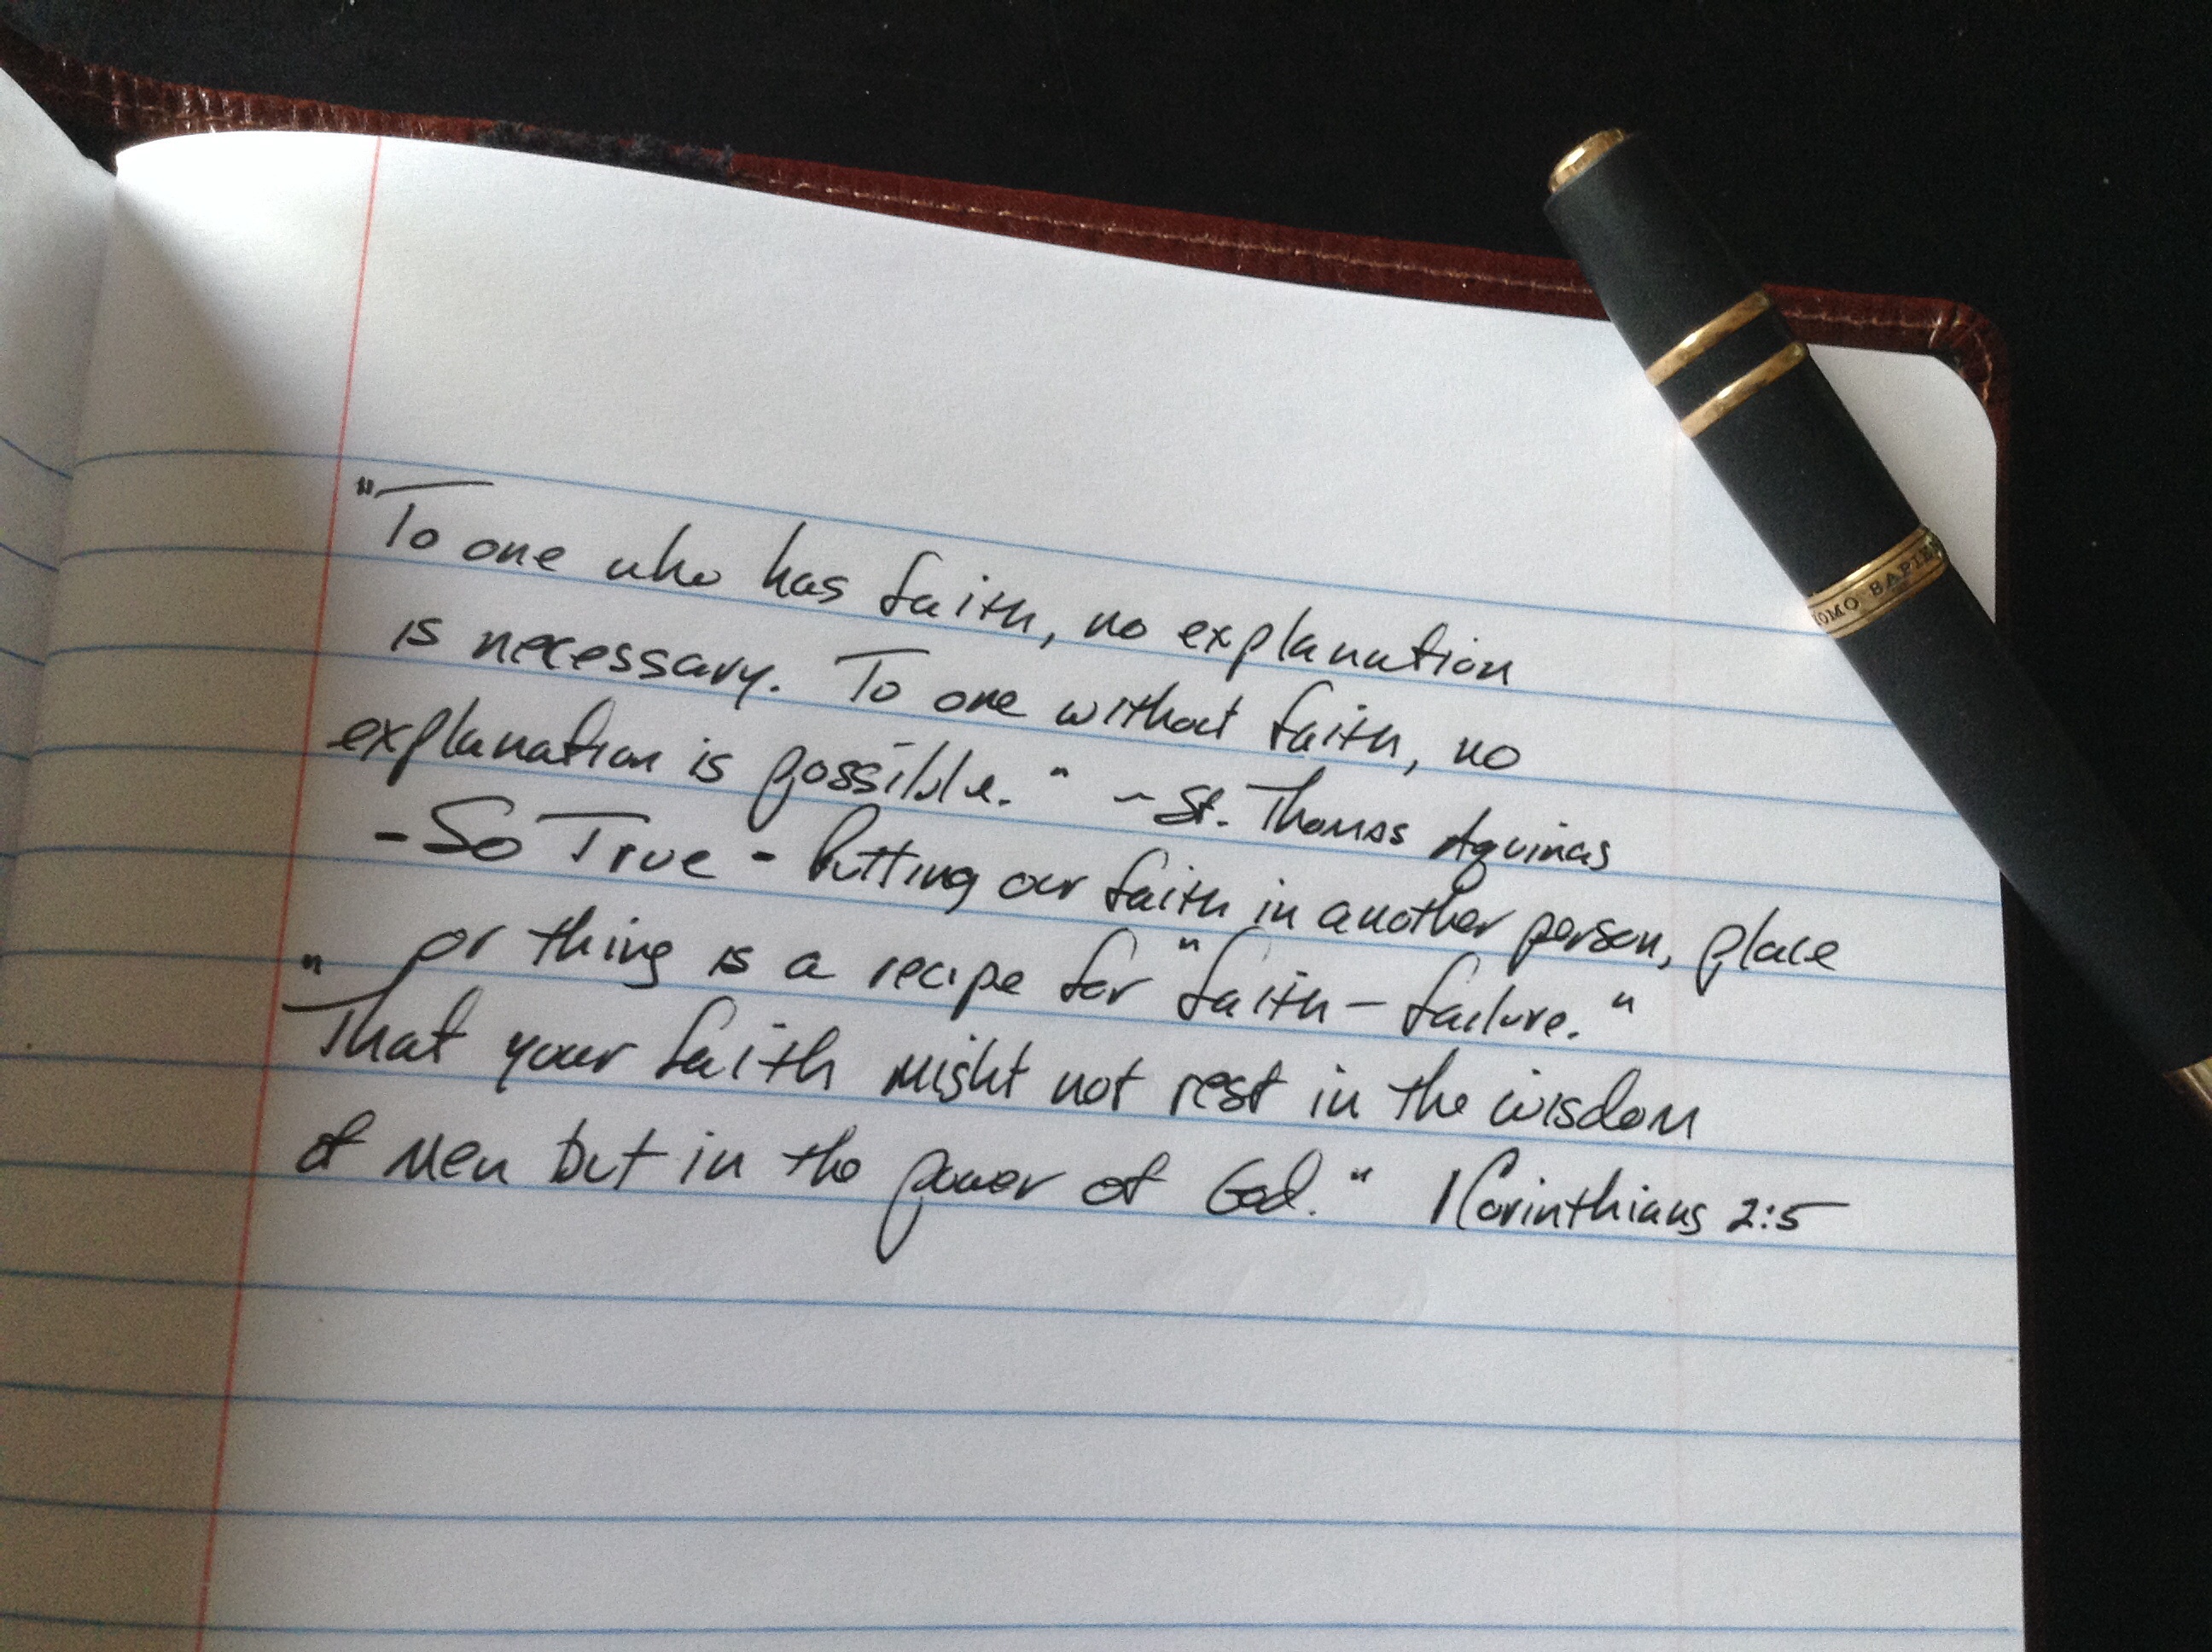 "To one who has faith, no explanation
is necessary. To one without faith, no
explanation is possible." ~St. Thomas Aquinas
- So True - Putting our faith in another person, place
or thing is a recipe for "faith-failure."
"That your faith might not rest in the wisdom
of men but in the power of God." 1 Corinthians 2:5
HOMO SAPIE